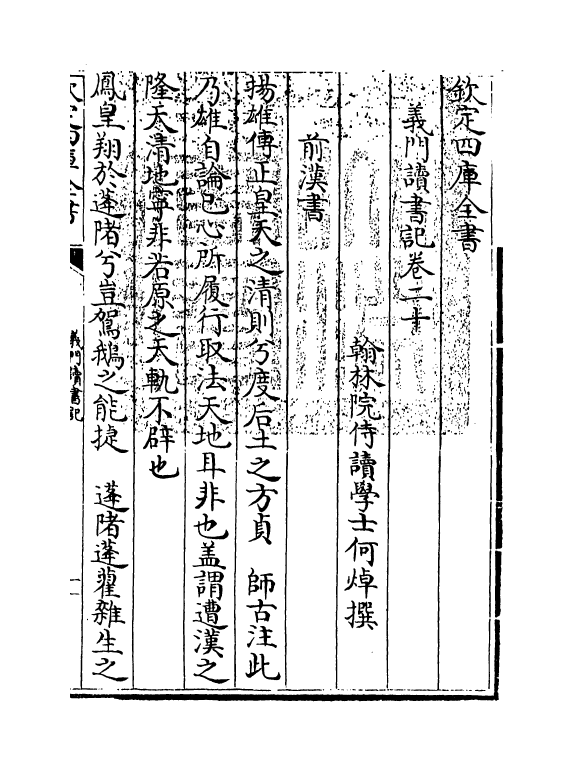 欽定四庫全書
義門讀書記卷二十
翰林院侍讀學士何焯撰
前漢書
揚雄傳正皇天之清則兮度后土之方貞　師古注此
乃雄自論己心所履行取法天地耳非也盖謂遭漢之
隆天清地寧非若原之天軌不辟也
鳳皇翔於蓬陼兮豈駕鵝之能捷　蓬陼蓬藋雜生之
欽定四庫全書
義門讀書記
一